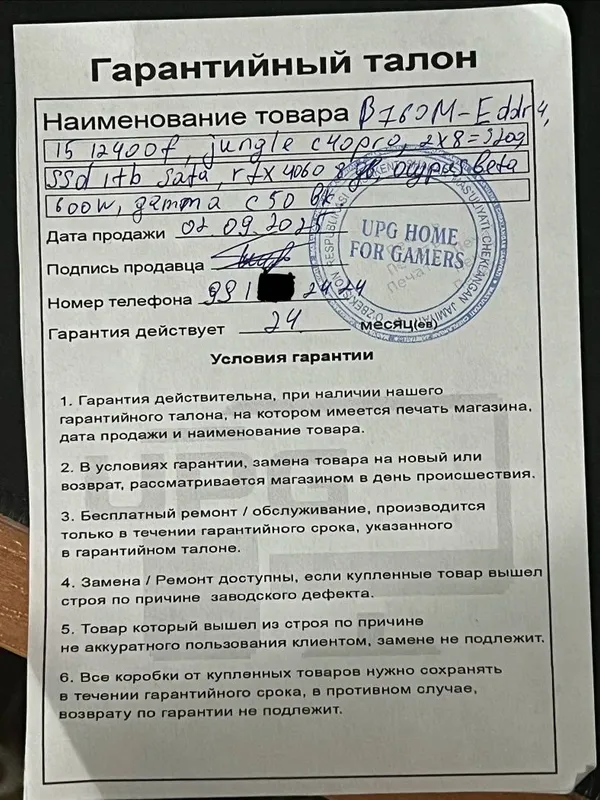 Гарантийный талон
Наименование товара B760M-E ddr4,
i5 12400f, jungle c40pro, 2x8=
ssd 1tb sata, rtx 4060 8 gb, beta
600w, gamma c50 bk.
Дата продажи 02.09.2025
Подпись продавца
Номер телефона 99 1 24 24
Гарантия действует 24 месяц(ев)
UPG HOME
FOR GAMERS
Условия гарантии
1. Гарантия действительна, при наличии нашего
гарантийного талона, на котором имеется печать магазина,
дата продажи и наименование товара.
2. В условиях гарантии, замена товара на новый или
возврат, рассматривается магазином в день происшествия.
3. Бесплатный ремонт / обслуживание, производится
только в течении гарантийного срока, указанного
в гарантийном талоне.
4. Замена / Ремонт доступны, если купленные товар вышел
строя по причине заводского дефекта.
5. Товар который вышел из строя по причине
не аккуратного пользования клиентом, замене не подлежит.
6. Все коробки от купленных товаров нужно сохранять
в течении гарантийного срока, в противном случае,
возврату по гарантии не подлежит.
UPG